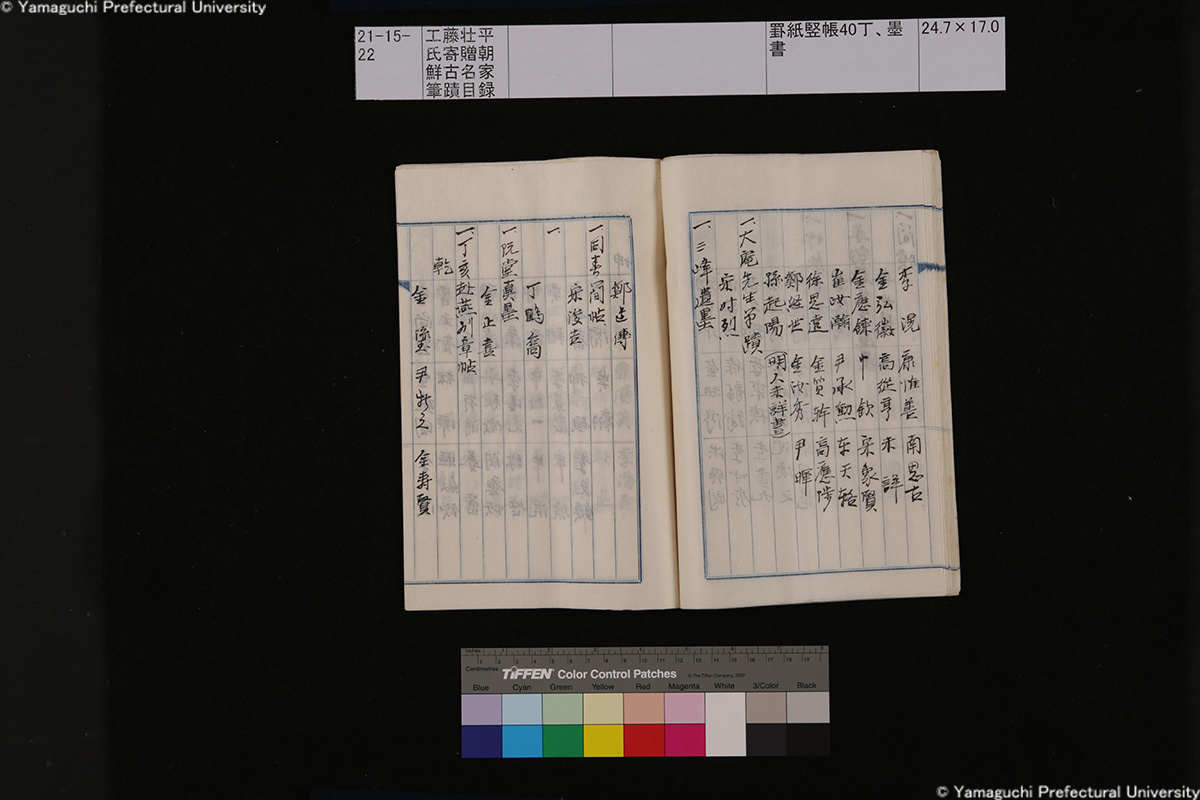 © Yamaguchi Prefectural University
21-15-22
工藤壮平
氏寄贈朝
鮮古名家
筆蹟目録
罫紙竪帳40丁、墨
書
24.7×17.0
李滉 康惟善 南思古
金弘徽 高從亨 未詳
金應鍊 中欽 梁象賢
崔汝瀚 尹承勲 車天輅
徐思遠 金質幹 高應陟
鄭経世 金汝物 尹暉
孫起陽 (明人未詳書)
一、大寵先生筆蹟
宋時烈
一、三峰遺墨
鄭道傳
一同春簡帖
宋浚吉
一
丁鶴喬
一阮堂真墨
金正喜
一、丁亥赴燕別章帖
乾
金瑬 尹新之 金壽賢
inches
Centimetres
TIFFEN Color Control Patches
© The Tiffen Company, 2007
Blue Cyan Green Yellow Red Magenta White 3/Color Black
© Yamaguchi Prefectural University